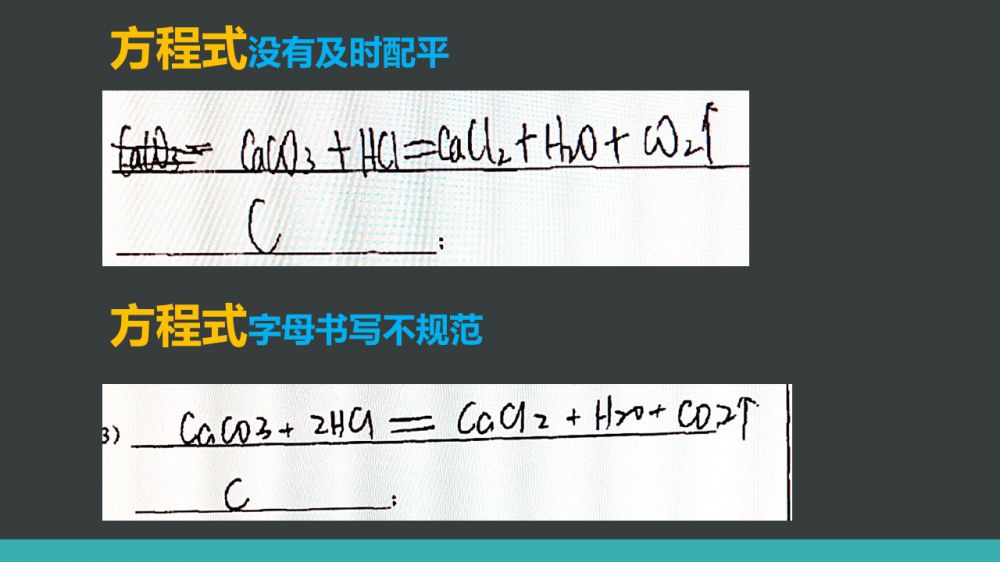 方程式没有及时配平
CaCO3= CaCO3+HCl=CaCl2+H2O+CO2↑
C ;
方程式字母书写不规范
3) CaCO3+2HCl=CaCl2+H2O+CO2↑
C ;